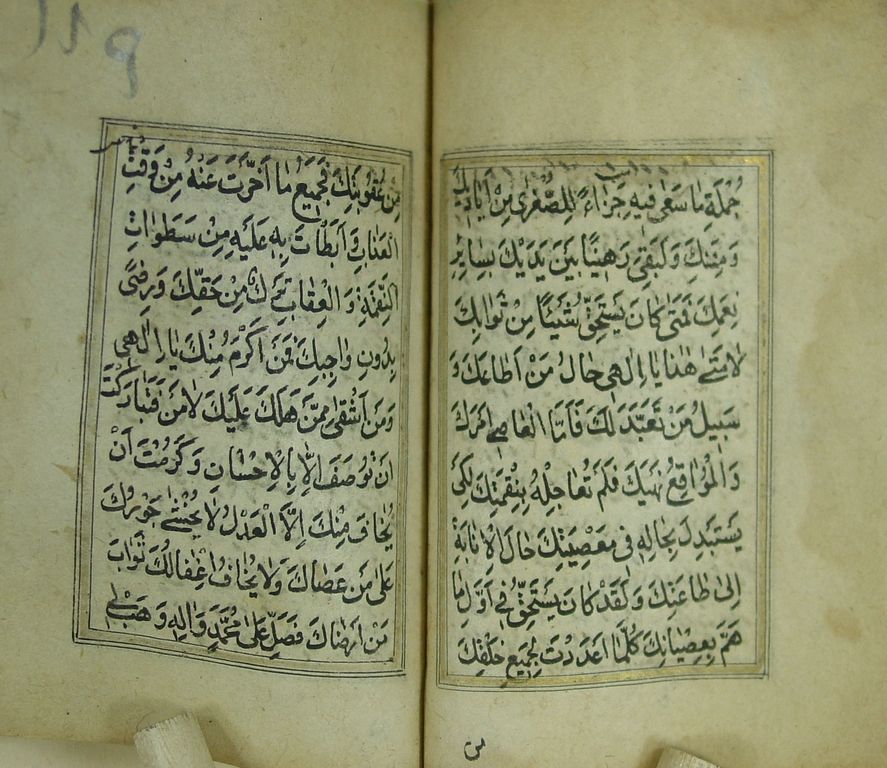 جُمْلَةِ مَا سَعٰى فِيهِ جَزَاءً لِلصُّغْرٰى مِنْ اَيَادِيكَ
وَ مِنَنِكَ وَ لَبَقِىَ رَهِينًا بَيْنَ يَدَيْكَ بِسٰايِرِ
نِعَمِكَ فَمَتٰى كَانَ يَسْتَحِقُّ شَيْئًا مِنْ ثَوَابِكَ
لَا مَتٰى هٰذَا يَا اِلٰهِى حَالُ مَنْ اَطَاعَكَ وَ
سَبِيلُ مَنْ تَعَبَّدَ لَكَ فَاَمَّا الْعَاصِى اَمْرَكَ
وَ الْمُوٰاقِعُ نَهْيَكَ فَلَمْ تُعٰاجِلْهُ بِنِقْمَتِكَ لِكَىْ
يَسْتَبْدِلَ بِحَالِهِ فِى مَعْصِيَتِكَ حَالَ الْاِنَابَةِ
اِلٰى طَاعَتِكَ وَ لَقَدْ كَانَ يَسْتَحِقُّ فِى اَوَّلِ مَا
هَمَّ بِعِصْيَانِكَ كُلَّمَا اَعْدَدْتَ لِجَمِيعِ خَلْقِكَ
مِن
مِنْ عُقُوبَتِكَ فَجَمِيعُ مَا اَخَّرْتَ عَنْهُ مِنْ وَقْتِ
الْعَذَابِ وَ اَبْطَاْتَ بِهِ عَلَيْهِ مِنْ سَطَوَاتِ
النَّقِمَةِ وَ الْعِقَابِ تَرْكٌ مِنْ حَقِّكَ وَ رِضًى
بِدُونِ وَاجِبِكَ فَمَنْ اَكْرَمُ مِنْكَ يَا اِلٰهِى
وَ مَنْ اَشْقٰى مِمَّنْ هَلَكَ عَلَيْكَ لَا مَنْ فَتَبَارَكْتَ
اَنْ تُوصَفَ اِلَّا بِالْاِحْسَانِ وَ كَرُمْتَ اَنْ
يُخَافَ مِنْكَ اِلَّا الْعَدْلُ لَا يُخْشٰى جَوْرُكَ
عَلٰى مَنْ عَصَاكَ وَ لَا يُخَافُ اِغْفَالُكَ ثَوَابَ
مَنْ اَرْضَاكَ فَصَلِّ عَلٰى مُحَمَّدٍ وَ اٰلِهِ وَ هَبْ لِى